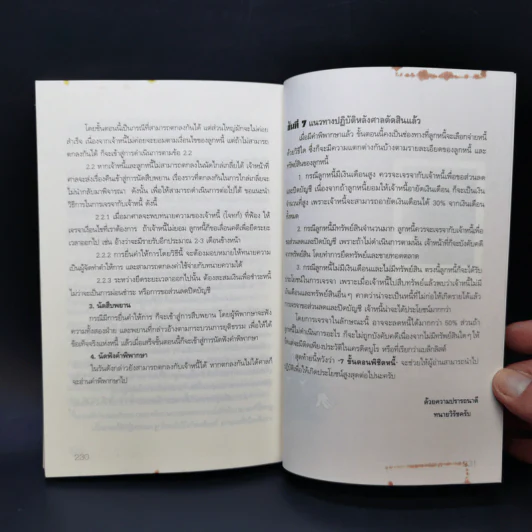 โดยขั้นตอนนี้เป็นกรณีที่สามารถตกลงกันได้ แต่ส่วนใหญ่มักจะไม่ค่อย
สำเร็จ เนื่องจากเจ้าหนี้ไม่ค่อยจะยอมตามเงื่อนไขของลูกหนี้ แต่ถ้าไม่สามารถ
ตกลงกันได้ ก็จะเข้าสู่การดำเนินการตามข้อ 2.2
2.2 หากเจ้าหนี้และลูกหนี้ไม่สามารถตกลงในนัดไกล่เกลี่ยได้ เจ้าหน้าที่
ศาลจะส่งเรื่องคืนเข้าสู่การนัดสืบพยาน เรื่องราวที่ตกลงกันในการไกล่เกลี่ยจะ
ไม่นำกลับมาพิจารณา ดังนั้น เพื่อให้สามารถดำเนินการต่อไปได้ ขอแนะนำ
วิธีการในการเจรจากับเจ้าหนี้ ดังนี้
2.2.1 เมื่อมาศาลจะพบทนายความของเจ้าหนี้ (โจทก์) ที่ฟ้อง ให้
เจรจาเงื่อนไขที่เราต้องการ ถ้าเจ้าหนี้ไม่ยอม ลูกหนี้ก็ขอเลื่อนคดีเพื่อยืดระยะ
เวลาออกไป เช่น อ้างว่าจะมีรายรับอีกประมาณ 2-3 เดือนข้างหน้า
2.2.2 การยื่นคำให้การโดยวิธีนี้ จะต้องมอบหมายให้ทนายความ
เป็นผู้จัดทำคำให้การ และสามารถตกลงค่าใช้จ่ายกับทนายความได้
2.2.3 ระหว่างยืดระยะเวลาออกไปนั้น ต้องสะสมเงินเพื่อชำระหนี้
ไม่ว่าจะเป็นการผ่อนชำระ หรือการขอส่วนลดปิดบัญชี
3. นัดสืบพยาน
กรณีมีการยื่นคำให้การ ก็จะเข้าสู่การสืบพยาน โดยผู้พิพากษาจะฟัง
ความทั้งสองฝ่าย และพยานที่กล่าวอ้างตามกระบวนการยุติธรรม เพื่อให้ได้
ข้อเท็จจริงแห่งหนี้ แล้วเมื่อเสร็จขั้นตอนนี้ก็จะเข้าสู่การนัดฟังคำพิพากษา
4. นัดฟังคำพิพากษา
ในวันดังกล่าวยังสามารถตกลงกับเจ้าหนี้ได้ หากตกลงกันไม่ได้ศาลก็
จะอ่านคำพิพากษาไป
230
ขั้นที่ 7 แนวทางปฏิบัติหลังศาลตัดสินแล้ว
เมื่อมีคำพิพากษาแล้ว ขั้นตอนนี้คงเป็นช่องทางที่ลูกหนี้จะเลือกจ่ายหนี้
ด้วยวิธีใด ซึ่งก็จะมีความแตกต่างกันบ้างตามรายละเอียดของลูกหนี้ และ
ทรัพย์สินของลูกหนี้
1. กรณีลูกหนี้มีเงินเดือนสูง ควรจะเจรจากับเจ้าหนี้เพื่อขอส่วนลด
และปิดบัญชี เนื่องจากถ้าลูกหนี้ยอมให้เจ้าหนี้อายัดเงินเดือน ก็จะเป็นเงิน
จำนวนที่สูง เพราะหากเจ้าหนี้จะสามารถอายัดเงินเดือนได้ 30% จากเงินเดือน
ทั้งหมด
2. กรณีลูกหนี้มีทรัพย์สินจำนวนมาก ลูกหนี้ควรจะเจรจากับเจ้าหนี้เพื่อ
ขอส่วนลดและปิดบัญชี เพราะถ้าไม่ดำเนินการตามนั้น เจ้าหน้าที่ก็จะบังคับคดี
จากทรัพย์สิน โดยทำการยึดทรัพย์และขายทอดตลาด
3. กรณีลูกหนี้ไม่มีเงินเดือนและไม่มีทรัพย์สิน ตรงนี้ลูกหนี้ก็จะได้รับ
ประโยชน์ในการเจรจา เพราะเมื่อเจ้าหนี้ไปสืบทรัพย์แล้วพบว่าเจ้าหนี้ไม่มี
เงินเดือนและไม่มีทรัพย์สินอื่นๆ คาดว่าน่าจะเป็นหนี้ที่ไม่ก่อให้เกิดรายได้แล้ว
การเจรจาขอส่วนลดและปิดบัญชี เจ้าหนี้น่าจะได้ประโยชน์มากกว่า
โดยการเจรจาในลักษณะนี้ อาจจะลดหนี้ได้มากกว่า 50% ส่วนถ้า
ลูกหนี้ไม่ดำเนินการอะไร ก็จะไม่ถูกบังคับคดีเนื่องจากไม่มีทรัพย์สินใดๆ ให้
ประวัติในเครดิตบูโร หรือที่เรียกว่าแบล็กลิสต์
สุดท้ายนี้หวังว่า "7 ขั้นตอนพิชิตหนี้" จะช่วยให้ผู้อ่านสามารถนำไป
ปฏิบัติเพื่อให้เกิดประโยชน์สูงสุดต่อไปนะครับ
ด้วยความปรารถนาดี
ทนายวิรัชครับ